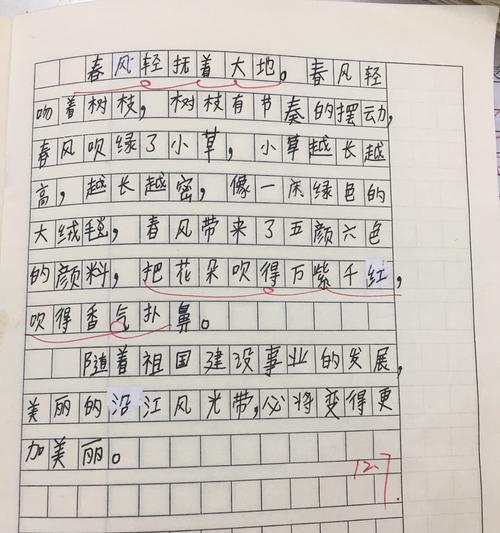 春风轻抚着大地。春风轻
吻着树枝，树枝有节奏的摆动，
春风吹绿了小草，小草越长越
高，越长越密，像一床绿色的
大绒毯，春风带来了五颜六色
的颜料，把花朵吹得万紫千红，
吹得香气扑鼻。
随着祖国建设事业的发展，
美丽的沿江风光带，必将变得更
加美丽。
12.7